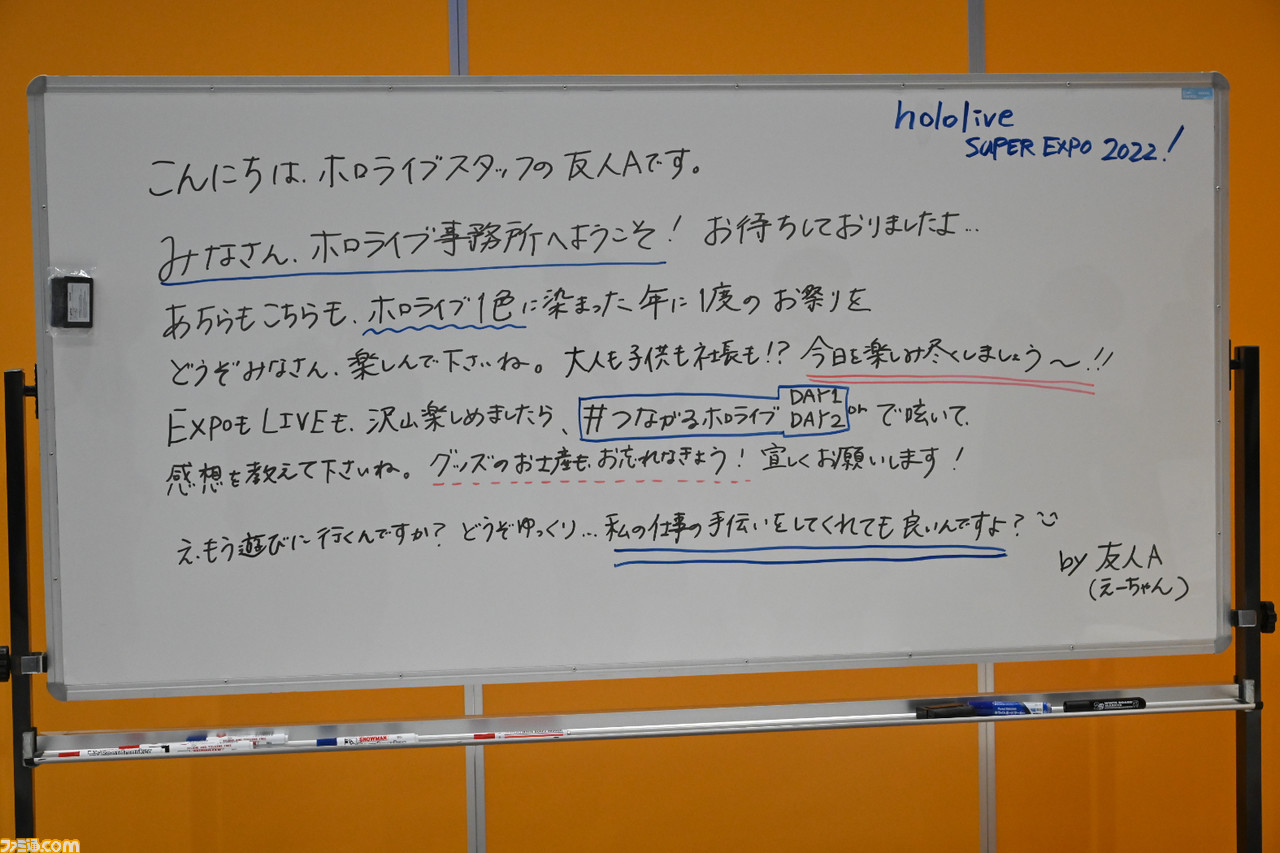 hololive
SUPER EXPO 2022!
こんにちは、ホロライブスタッフの友人Aです。
みなさん、ホロライブ事務所へようこそ! お待ちしておりましたよ…
あちらもこちらも、ホロライブ1色に染まった年に1度のお祭りを
どうぞみなさん、楽しんで下さいね。大人も子供も社長も!? 今日を楽しみ尽くしましょう〜!!
EXPOもLIVEも、沢山楽しめましたら、#つながるホロライブ DAY1 DAY2 or で呟いて、
感想を教えて下さいね。グッズのお土産も、お忘れなきよう! 宜しくお願いします!
え、もう遊びに行くんですか? どうぞゆっくり…私の仕事の手伝いをしてくれても良いんですよ?
by 友人A
(えーちゃん)
SNOWMAN
ファミ通.com